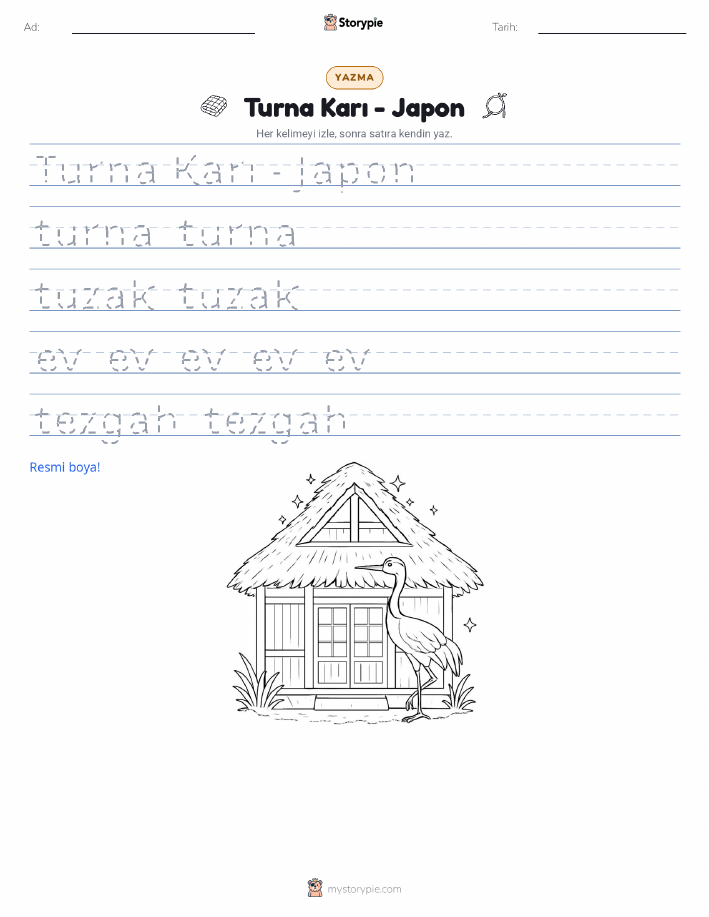 Ad:
Storypie
Tarih:
YAZMA
Turna Karı - Japon
Her kelimeyi izle, sonra satıra kendin yaz.
Turna Karı - Japon
turna turna
tuzak tuzak
ev ev ev ev ev
tezgah tezgah
Resmi boya!
mystorypie.com